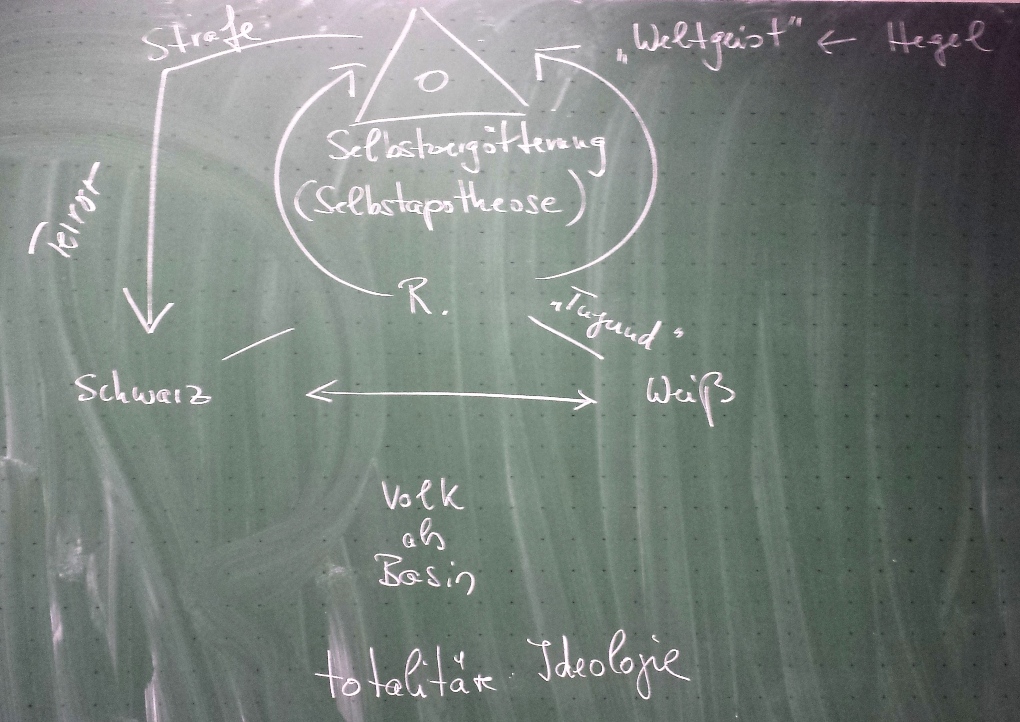 Strafe
"Weltgeist" ← Hegel
O
Selbstvergötterung
(Selbstapotheose)
Terror
R.
"Tugend"
Schwarz
Weiß
Volk
als
Basis
totalitäre Ideologie